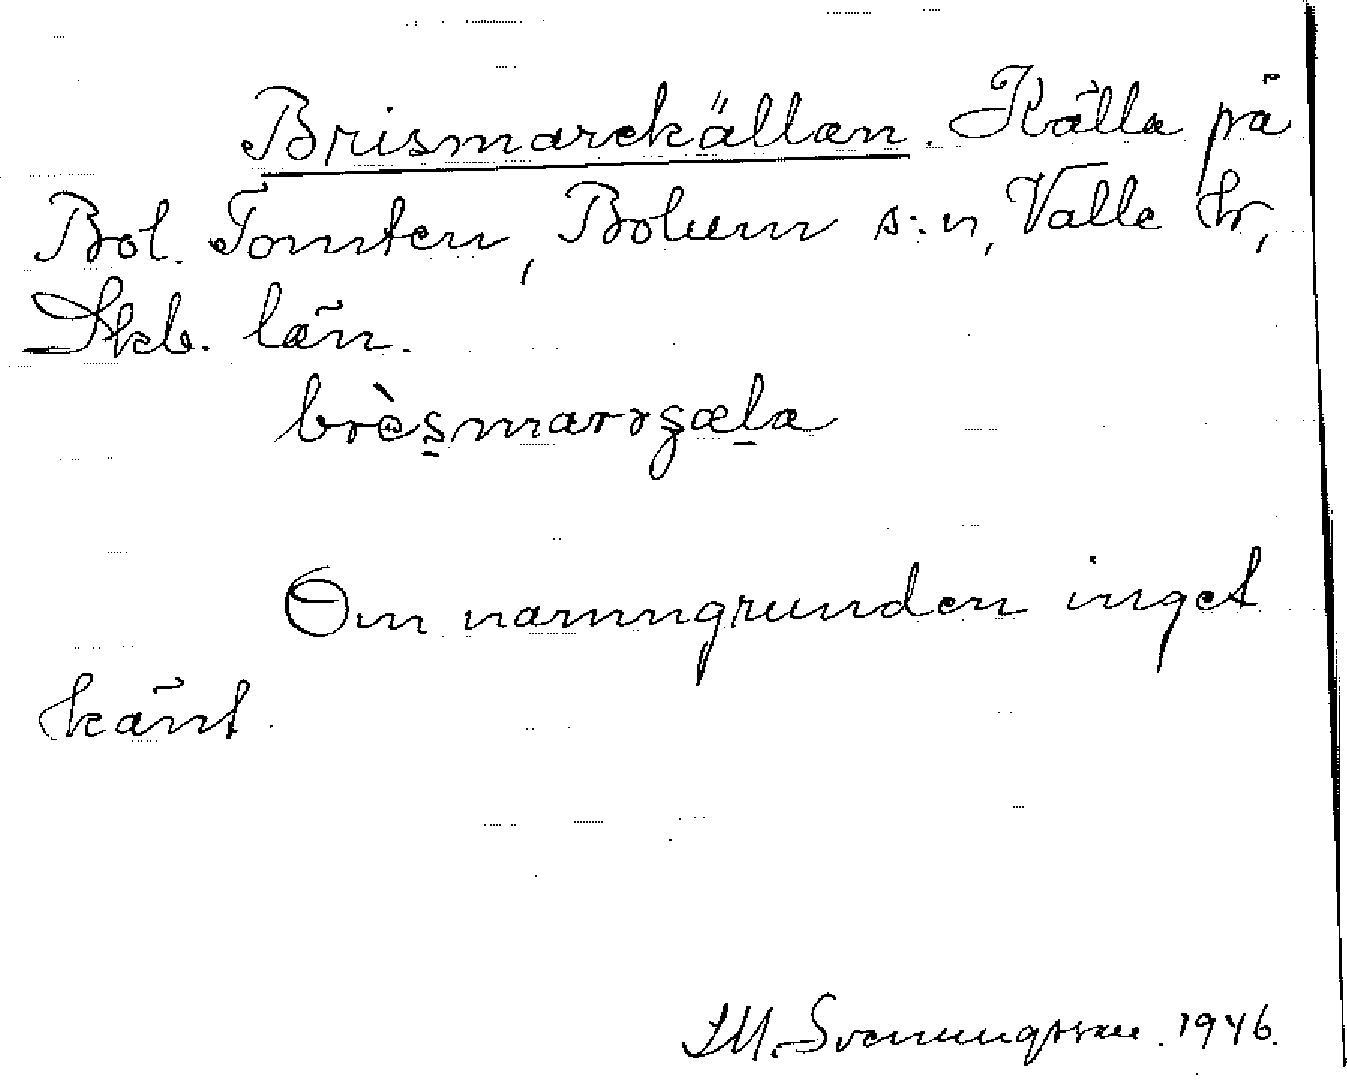 Brismarekällan. Källa på
Bol. Tomten, Bolum s:n, Valle hr,
Skb. län.
brèsmarrʂæla
Om namngrunden inget
känt.
S.M. Svenungsson. 1946.